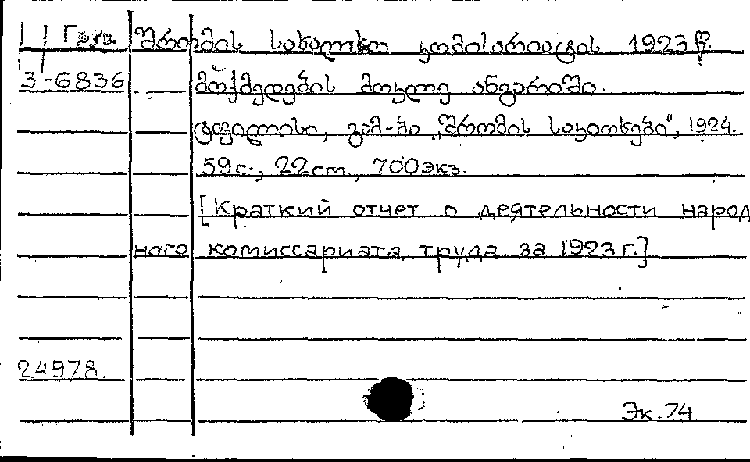 Груз. შრომის სახალხო კომისარიატის 1923 წ.
3-6836 მოქმედების მოკლე ანგარიში.
ტფილისი, გამ-ბა „შრომის საკითხები", 1924.
59с., 22cm., 700экз.
[Краткий отчет о деятельности народ
ного комиссариата труда за 1923 г.]
24978.
Эк. 74